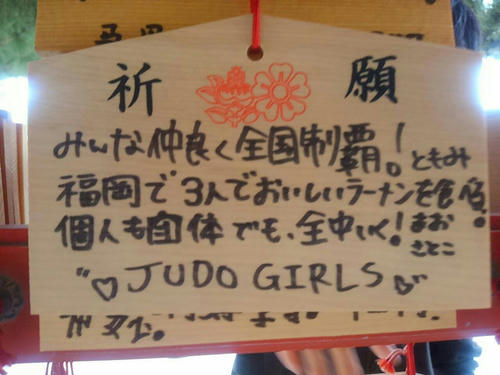 祈 願
みんな仲良く全国制覇! ともみ
福岡で3人でおいしいラーメンを食す!
個人も団体でも、全中いく! まお
さとこ
"♡JUDO GIRLS♡"